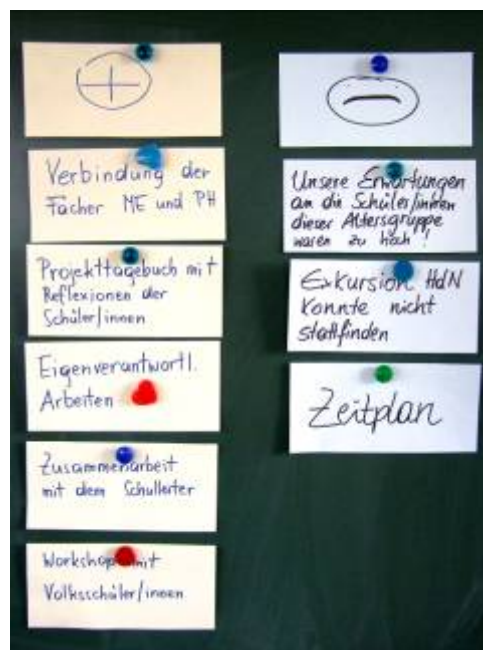 +
Verbindung der
Fächer ME und PH
Projekttagebuch mit
Reflexionen der
Schüler/innen
Eigenverantwortl.
Arbeiten
Zusammenarbeit
mit dem Schulleiter
Workshop mit
Volksschüler/innen
Unsere Erwartungen
an die Schüler/innen
dieser Altersgruppe
waren zu hoch!
Exkursion HdN
konnte nicht
stattfinden
Zeitplan